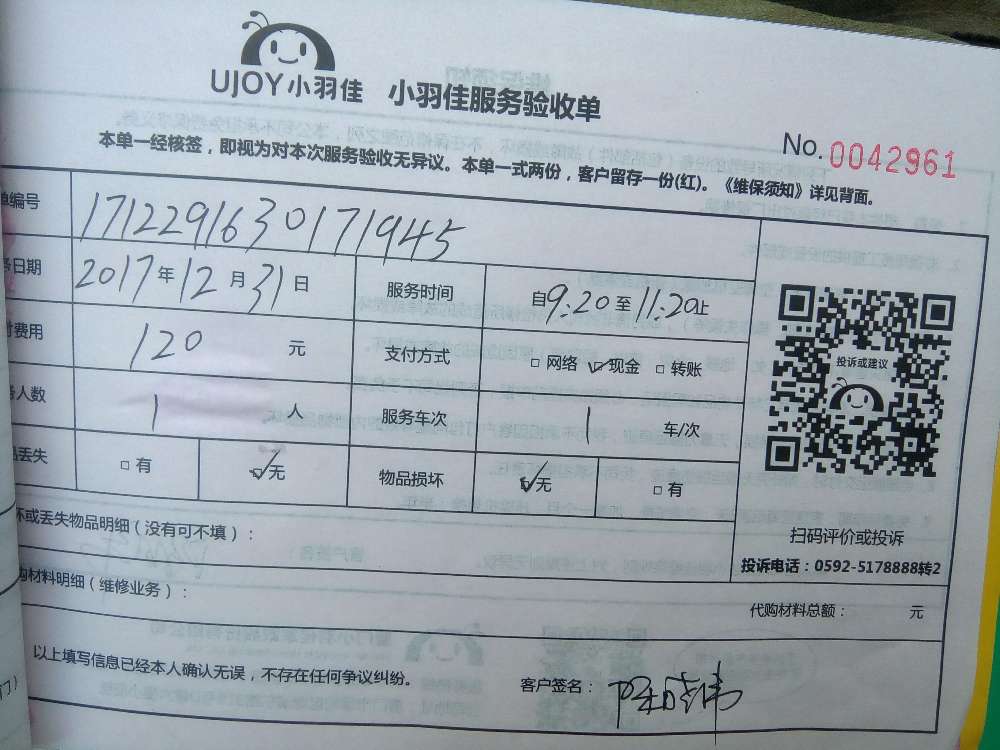 UJOY小羽佳 小羽佳服务验收单
No.0042961
本单一经核签，即视为对本次服务验收无异议。本单一式两份，客户留存一份(红)。《维保须知》详见背面。
单编号 1712291630171945
务日期 2017年12月31日 服务时间 自9:20至11:20止
付费用 120 元 支付方式 □ 网络 ☑ 现金 □ 转账
务人数 1 人 服务车次 1 车/次
品丢失 □ 有 ☑ 无 物品损坏 ☑ 无 □ 有
投诉或建议
扫码评价或投诉
投诉电话：0592-5178888转2
坏或丢失物品明细（没有可不填）：
购材料明细（维修业务）：
代购材料总额： 元
以上填写信息已经本人确认无误，不存在任何争议纠纷。
客户签名：